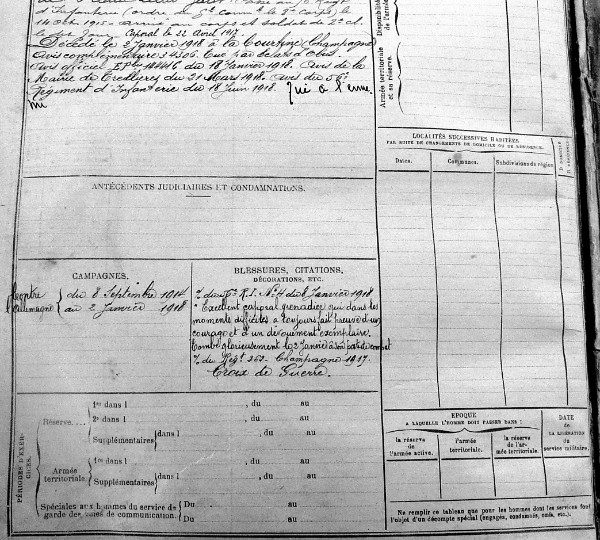 14 Octobre 1915
Caporal le 22 Avril 1917.
Décédé le 2 Janvier 1918 à la Courtine (Champagne)
Avis complémentaire 34305. Tué par éclats d'obus
Avis officiel du 18 Janvier 1918. Avis de la
Mairie de Treillières du 21 Mars 1918. Avis du
Régiment d'Infanterie du 18 Juin 1918. Tué à l'enne
mi
Disponibilité
Armée territoriale
et sa réserve.
LOCALITÉS SUCCESSIVES HABITÉES
PAR SUITE DE CHANGEMENTS DE DOMICILE OU DE RÉSIDENCE.
Dates.
Communes.
Subdivisions de région.
D DOMICILE
R RÉSIDENCE.
ANTÉCÉDENTS JUDICIAIRES ET CONDAMNATIONS.
CAMPAGNES.
contre
l'allemagne
du 8 Septembre 1914
au 2 Janvier 1918
BLESSURES, CITATIONS,
DÉCORATIONS, ETC.
R.I. N° 4 du 8 Janvier 1918
"Excellent caporal grenadier qui dans les
moments difficiles a toujours fait preuve d'un
courage et d'un dévouement exemplaire.
Tombé glorieusement le 2 Janvier à son poste de combat
Champagne 1917.
Croix de Guerre.
PÉRIODES D'EXERCICES.
Réserve....
1re dans l , du au
2e dans l , du au
Supplémentaires dans l , du au
Armée
territoriale.
1re dans l , du au
Supplémentaires dans l , du au
Spéciales aux hommes du service de
garde des voies de communication.
Du au
Du au
EPOQUE
A LAQUELLE L'HOMME DOIT PASSER DANS :
la réserve
de l'armée active.
l'armée
territoriale.
la réserve de l'ar-
mée territoriale.
DATE
DE LA LIBÉRATION
du
service militaire.
Ne remplir ce tableau que pour les hommes dont les services font
l'objet d'un décompte spécial (engagés, condamnés, omis, etc.).